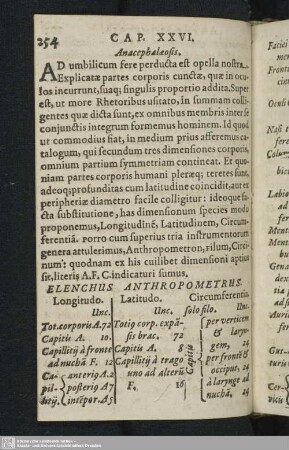 254 CAP. XXVI.
Anacephalæosis.
AD umbilicum fere perducta est opella nostra.
Explicatæ partes corporis cunctæ, quæ in oculos
incurrunt, suaq; singulis proportio addita. Super
est, ut more Rhetoribus usitato, in summam colligentes
quæ dicta sunt, ex omnibus membris inter se
conjunctis integrum formemus hominem. Id quod
ut commodius fiat, in medium prius afferemus catalogum,
qui secundum tres dimensiones corporis,
omnium partium symmetriam contineat. Et quoniam
partes corporis humani pleræq; teretes sunt,
adeoq; profunditas cum latitudine coincidit, aut ex
peripheriæ diametro facile colligitur: ideoque facta
substitutione, has dimensionum species modo
proponemus, Longitudinē, Latitudinem, Circumferentiā.
Porro cum superius tria instrumentorum
genera attulerimus, Anthropometron, Filum, Circinum:
quodnam ex his cuilibet dimensioni aptius
sit, literis A.F.C. indicaturi sumus.
ELENCHUS ANTHROPOMETRUS.
Longitudo. Latitudo. Circumferentia
Unc. Unc. solo filo. Unc.
Tot. corporis A. 72
Capitis A. 10
Capillitij à fronte
ad nuchā F. 12
Capillitij
anterią A. 2
posterią A 7
intēpor. A 5
Totię corp. expāsis
brac. 72
Capitis A. 8
Capillitij à trago
uno ad alterū
F. 16
Capitis
per verticem
& laryngem, 24
per frontē &
occiput, 24
à larynge ad
nuchā, 24